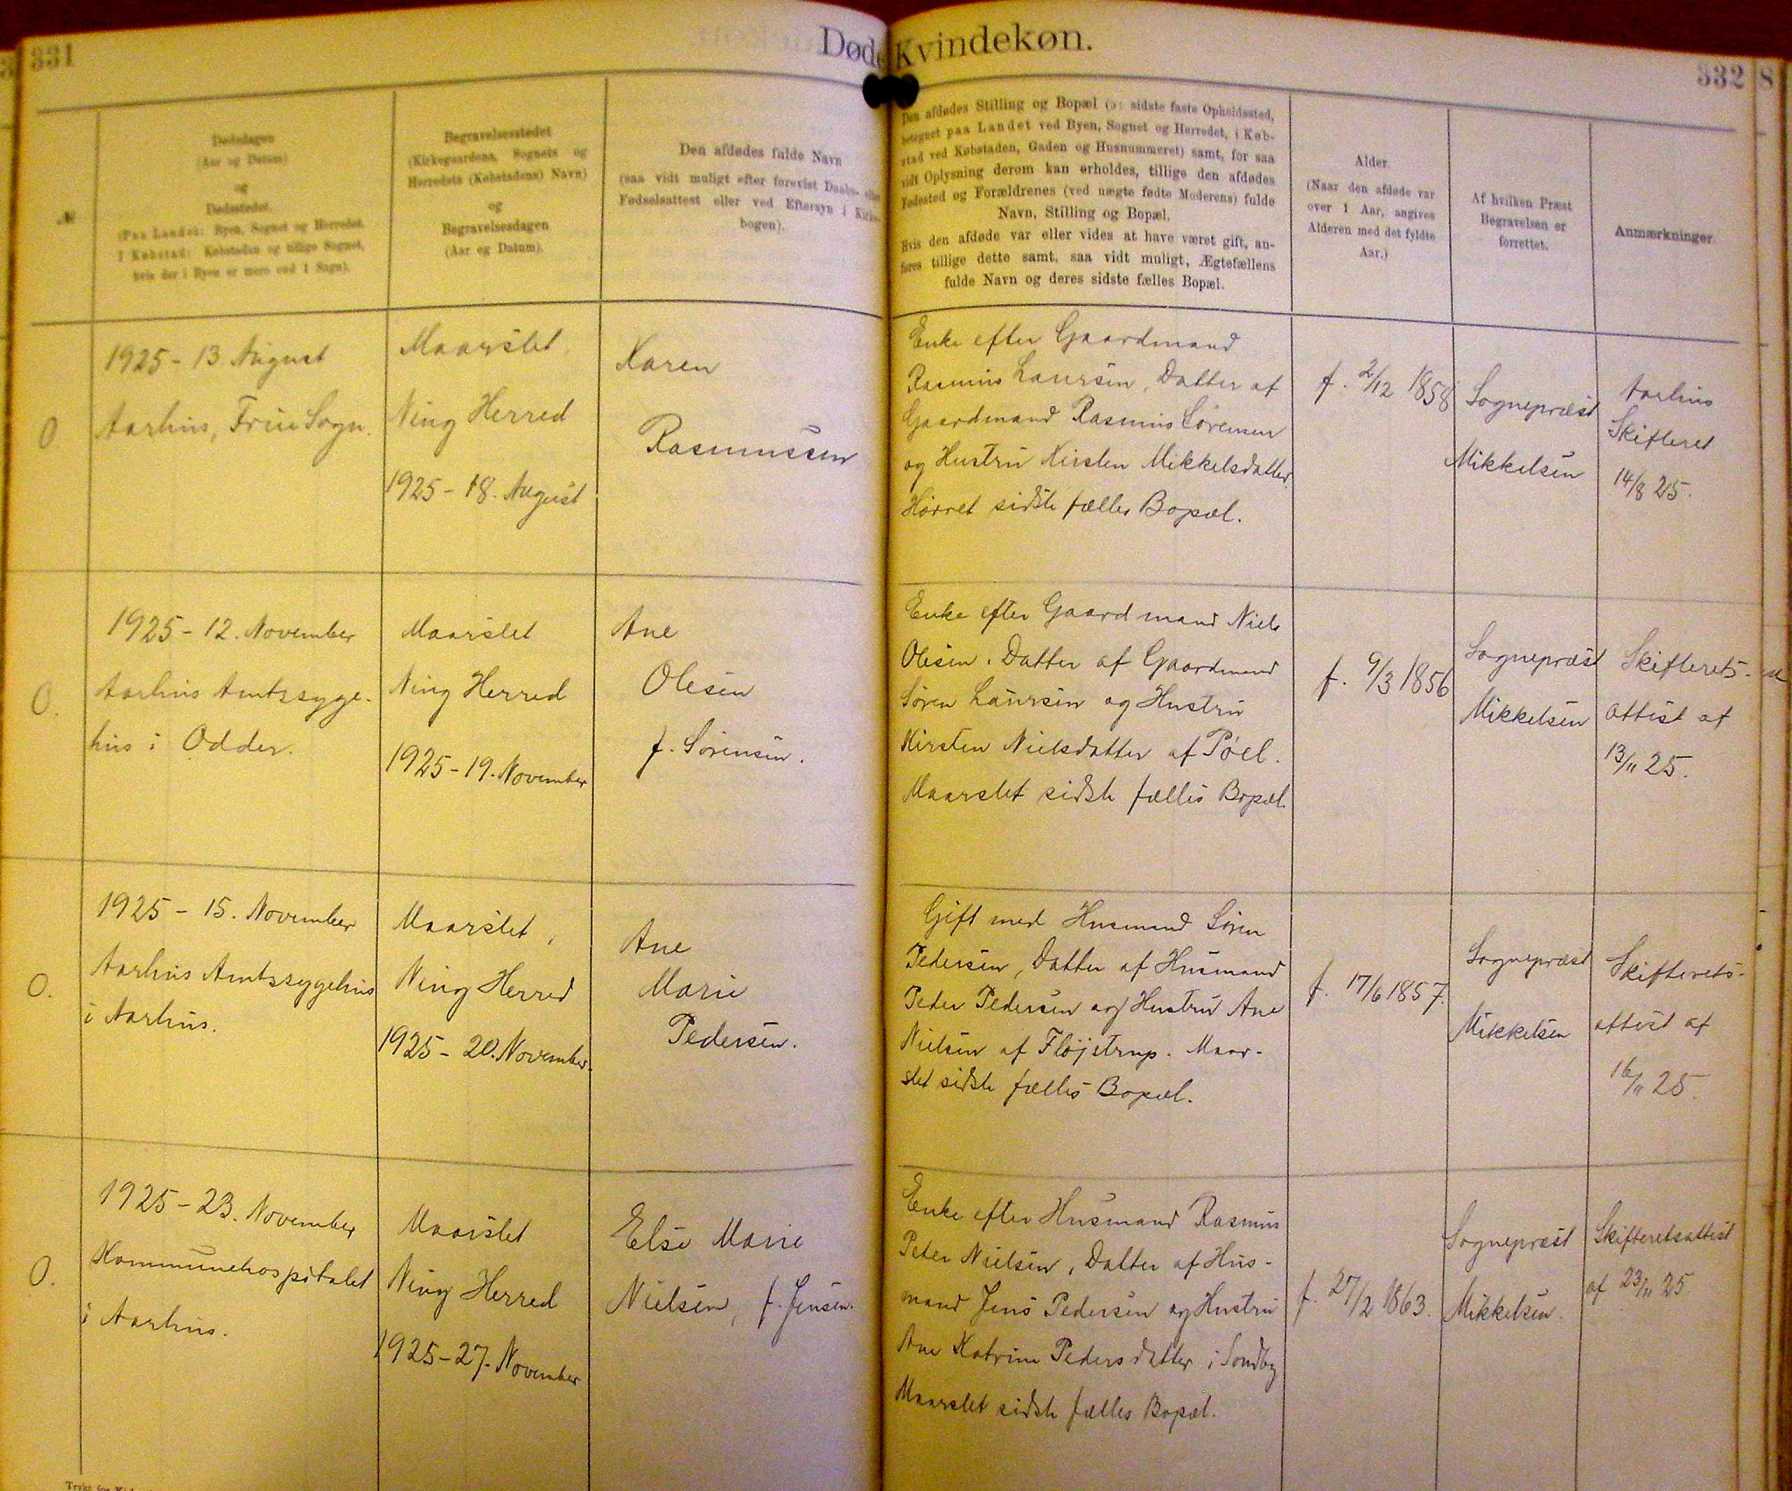 331
Døde Kvindekøn.
332
№
Dødsdagen
(Aar og Datum)
og
Dødsstedet.
(Paa Landet: Byen, Sognet og Herredet.
I Købstad: Købstaden og tillige Sognet,
hvis der i Byen er mere end 1 Sogn).
Begravelsesstedet
(Kirkegaardens, Sognets og
Herredets (Købstadens) Navn)
og
Begravelsesdagen
(Aar og Datum).
Den afdødes fulde Navn
(saa vidt muligt efter forevist Daabs- eller
Fødselsattest eller ved Eftersyn i Kirke-
bogen).
Den afdødes Stilling og Bopæl (ɔ: sidste faste Opholdssted,
betegnet paa Landet ved Byen, Sognet og Herredet, i Køb-
stad ved Købstaden, Gaden og Husnummeret) samt, for saa
vidt Oplysning derom kan erholdes, tillige den afdødes
Fødested og Forældrenes (ved uægte fødte Moderens) fulde
Navn, Stilling og Bopæl.
Hvis den afdøde var eller vides at have været gift, an-
føres tillige dette samt, saa vidt muligt, Ægtefællens
fulde Navn og deres sidste fælles Bopæl.
Alder.
(Naar den afdøde var
over 1 Aar, angives
Alderen med det fyldte
Aar.)
Af hvilken Præst
Begravelsen er
forrettet.
Anmærkninger.
0.
1925 - 13 August
Aarhus, Frue Sogn.
Maarslet
Ning Herred
1925 - 18. August
Karen
Rasmussen
Enke efter Gaardmand
Rasmus Laursen, Datter af
Gaardmand Rasmus Sørensen
og Hustru Kirsten Mikkelsdatter
Hørret sidste fælles Bopæl.
f. 2/12 1858
Sognepræst
Mikkelsen
Aarhus
Skifteret
14/8 25.
0.
1925 - 12. November
Aarhus Amtssyge-
hus i Odder.
Maarslet
Ning Herred
1925 - 19. November
Ane
Olesen
f. Sørensen.
Enke efter Gaardmand Niels
Olesen. Datter af Gaardmand
Søren Laursen og Hustru
Kirsten Nielsdatter af
Maarslet sidste fælles Bopæl.
f. 9/3 1856
Sognepræst
Mikkelsen
Skifterets-
attest af
13/11 25.
0.
1925 - 15. November
Aarhus Amtssygehus
i Aarhus.
Maarslet,
Ning Herred
1925 - 20. November.
Ane
Marie
Pedersen.
Gift med Husmand Søren
Pedersen, Datter af Husmand
Peder Pedersen og Hustru Ane
Nielsen af Fløjstrup. Maar-
slet sidste fælles Bopæl.
f. 17/6 1857.
Sognepræst
Mikkelsen
Skifterets-
attest af
16/11 25.
0.
1925 - 23. November
Kommunehospitalet
i Aarhus.
Maarslet
Ning Herred
1925 - 27. November
Else Marie
Nielsen, f. Jensen.
Enke efter Husmand Rasmus
Peter Nielsen, Datter af Hus-
mand Jens Pedersen og Hustru
Ane Katrine Pedersdatter i
Maarslet sidste fælles Bopæl.
f. 27/2 1863.
Sognepræst
Mikkelsen.
Skifteretsattest
af 23/11 25